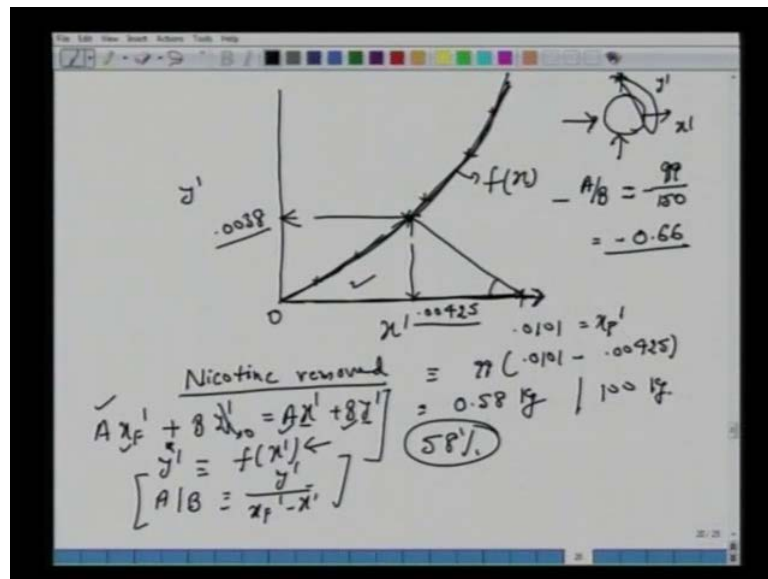 File Edit View Insert Actions Tools Help
y'
y'
x'
f(x)
- A/B = - 99/150
= - 0.66
.0038
0
x' .00425
.0101 = xF'
Nicotine removed ≡ 99 (.0101 - .00425)
= 0.58 kg / 100 kg
58%
A xF' + B = A x' + B y'
y' ≡ f(x') ←
[ A/B ≡ y' / xF' - x' ]
20/25